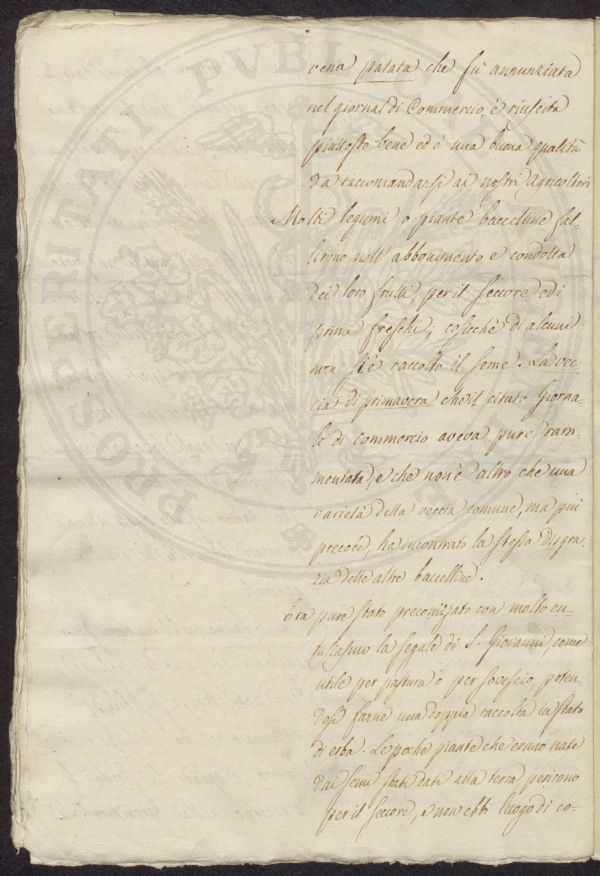 vena patata che fù annunziata
nel giornal di Commercio, è riuscita
piuttosto bene ed è una buona qualità
da raccomandarsi ai nostri Agricoltori
Molti legumi o piante baccelline fal-
lirono nell' abbonimento e condotta
dei loro frutti, per il seccore ed i
primi freschi; cosicchè di alcuni
non si è raccolto il seme. La vec-
cia di primavera che il citato Giorna-
le di commercio aveva pure ram-
mentata, e che non è altro che una
varietà della veccia comune, ma più
precoce, ha incontrato la stessa disgra-
zia delle altre baccelline.
Era pure stato preconizzato con molto en-
tusiasmo la segale di S. Giovanni, come
utile per pastura o per sovescio, poten-
dosi farne una doppia raccolta in stato
di erba. Le poche piante che erano nate
dai semi stati dati alla terra perirono
per il seccore, e non ebbi luogo di co-
PRO PVBLICAE